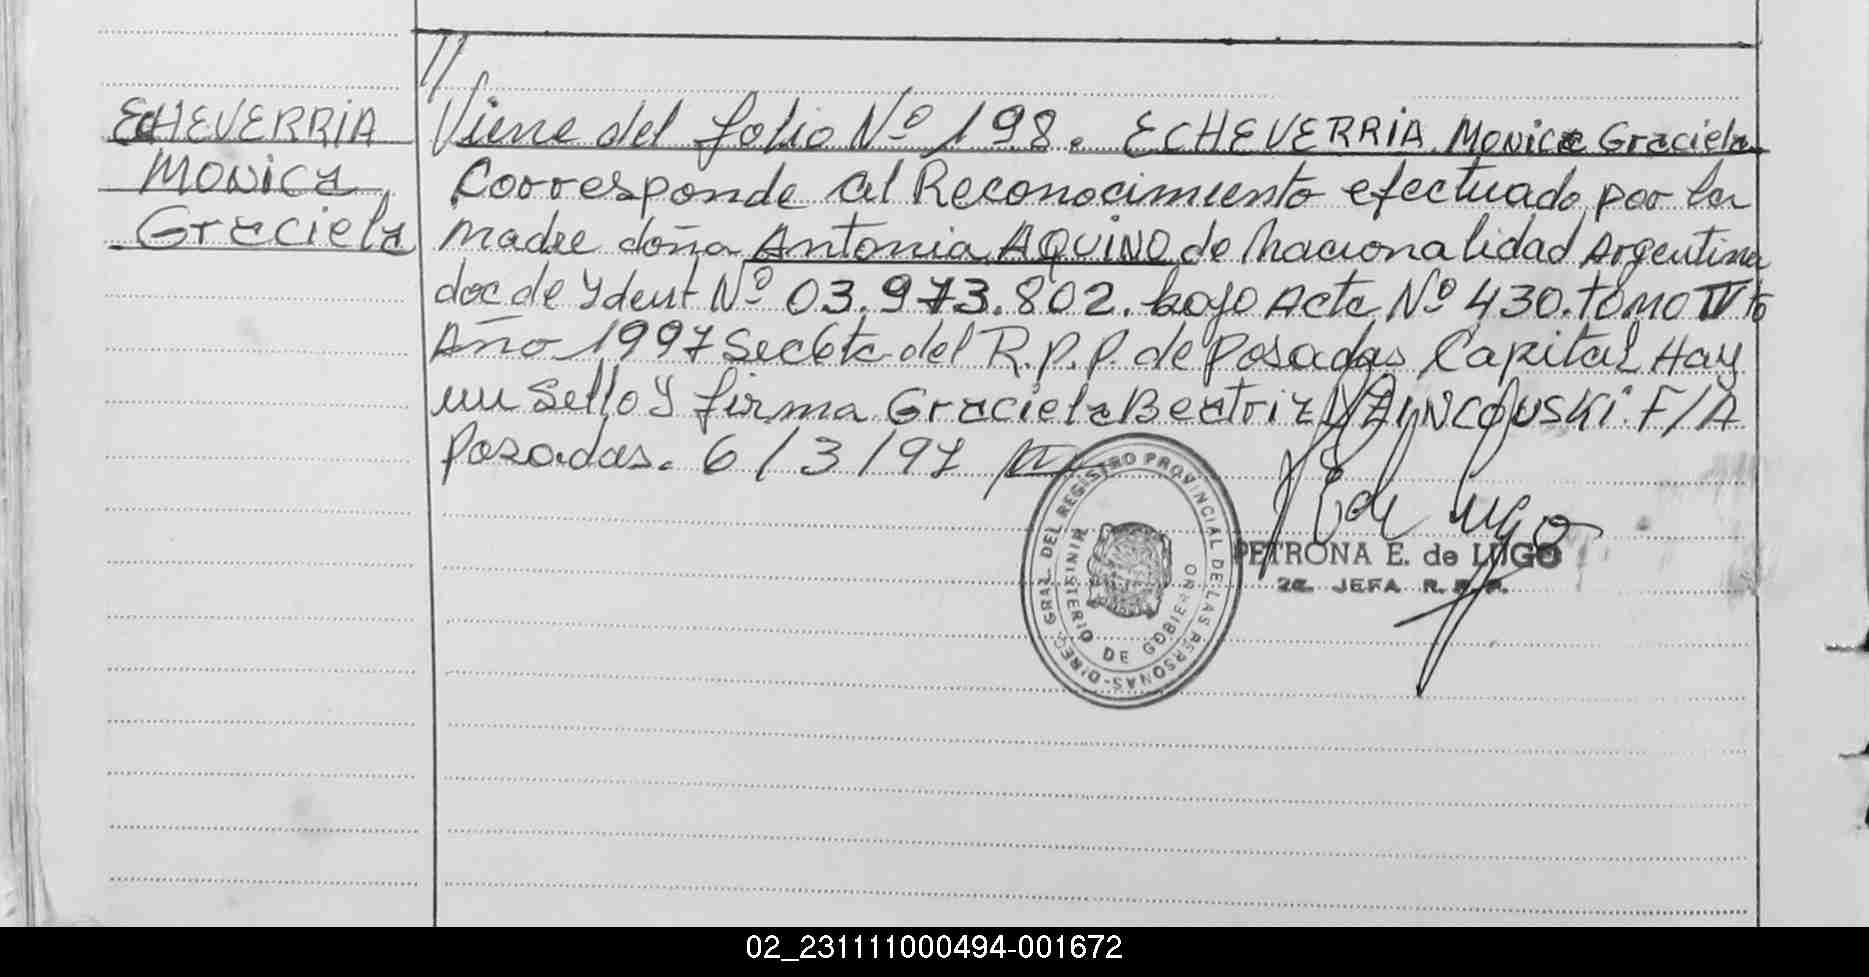 ECHEVERRIA
MONICA
Graciela
//
Viene del folio Nº 198. ECHEVERRIA Monica Graciela
Corresponde al Reconocimiento efectuado por la
madre doña Antonia AQUINO de nacionalidad Argentina
doc de Ydent Nº 03.973.802. bajo Acta Nº 430. tomo IV to
Año 1997 Sec 6ta del R.P.P. de Posadas Capital Hay
un Sello y firma Graciela Beatriz F/A
Posadas. 6/3/97
DIREC. GRAL. DEL REGISTRO PROVINCIAL DE LAS PERSONAS-
MINISTERIO DE GOBIERNO
E de Lugo
PETRONA E. de LUGO
2a. JEFA R.P.P.
02_231111000494-001672